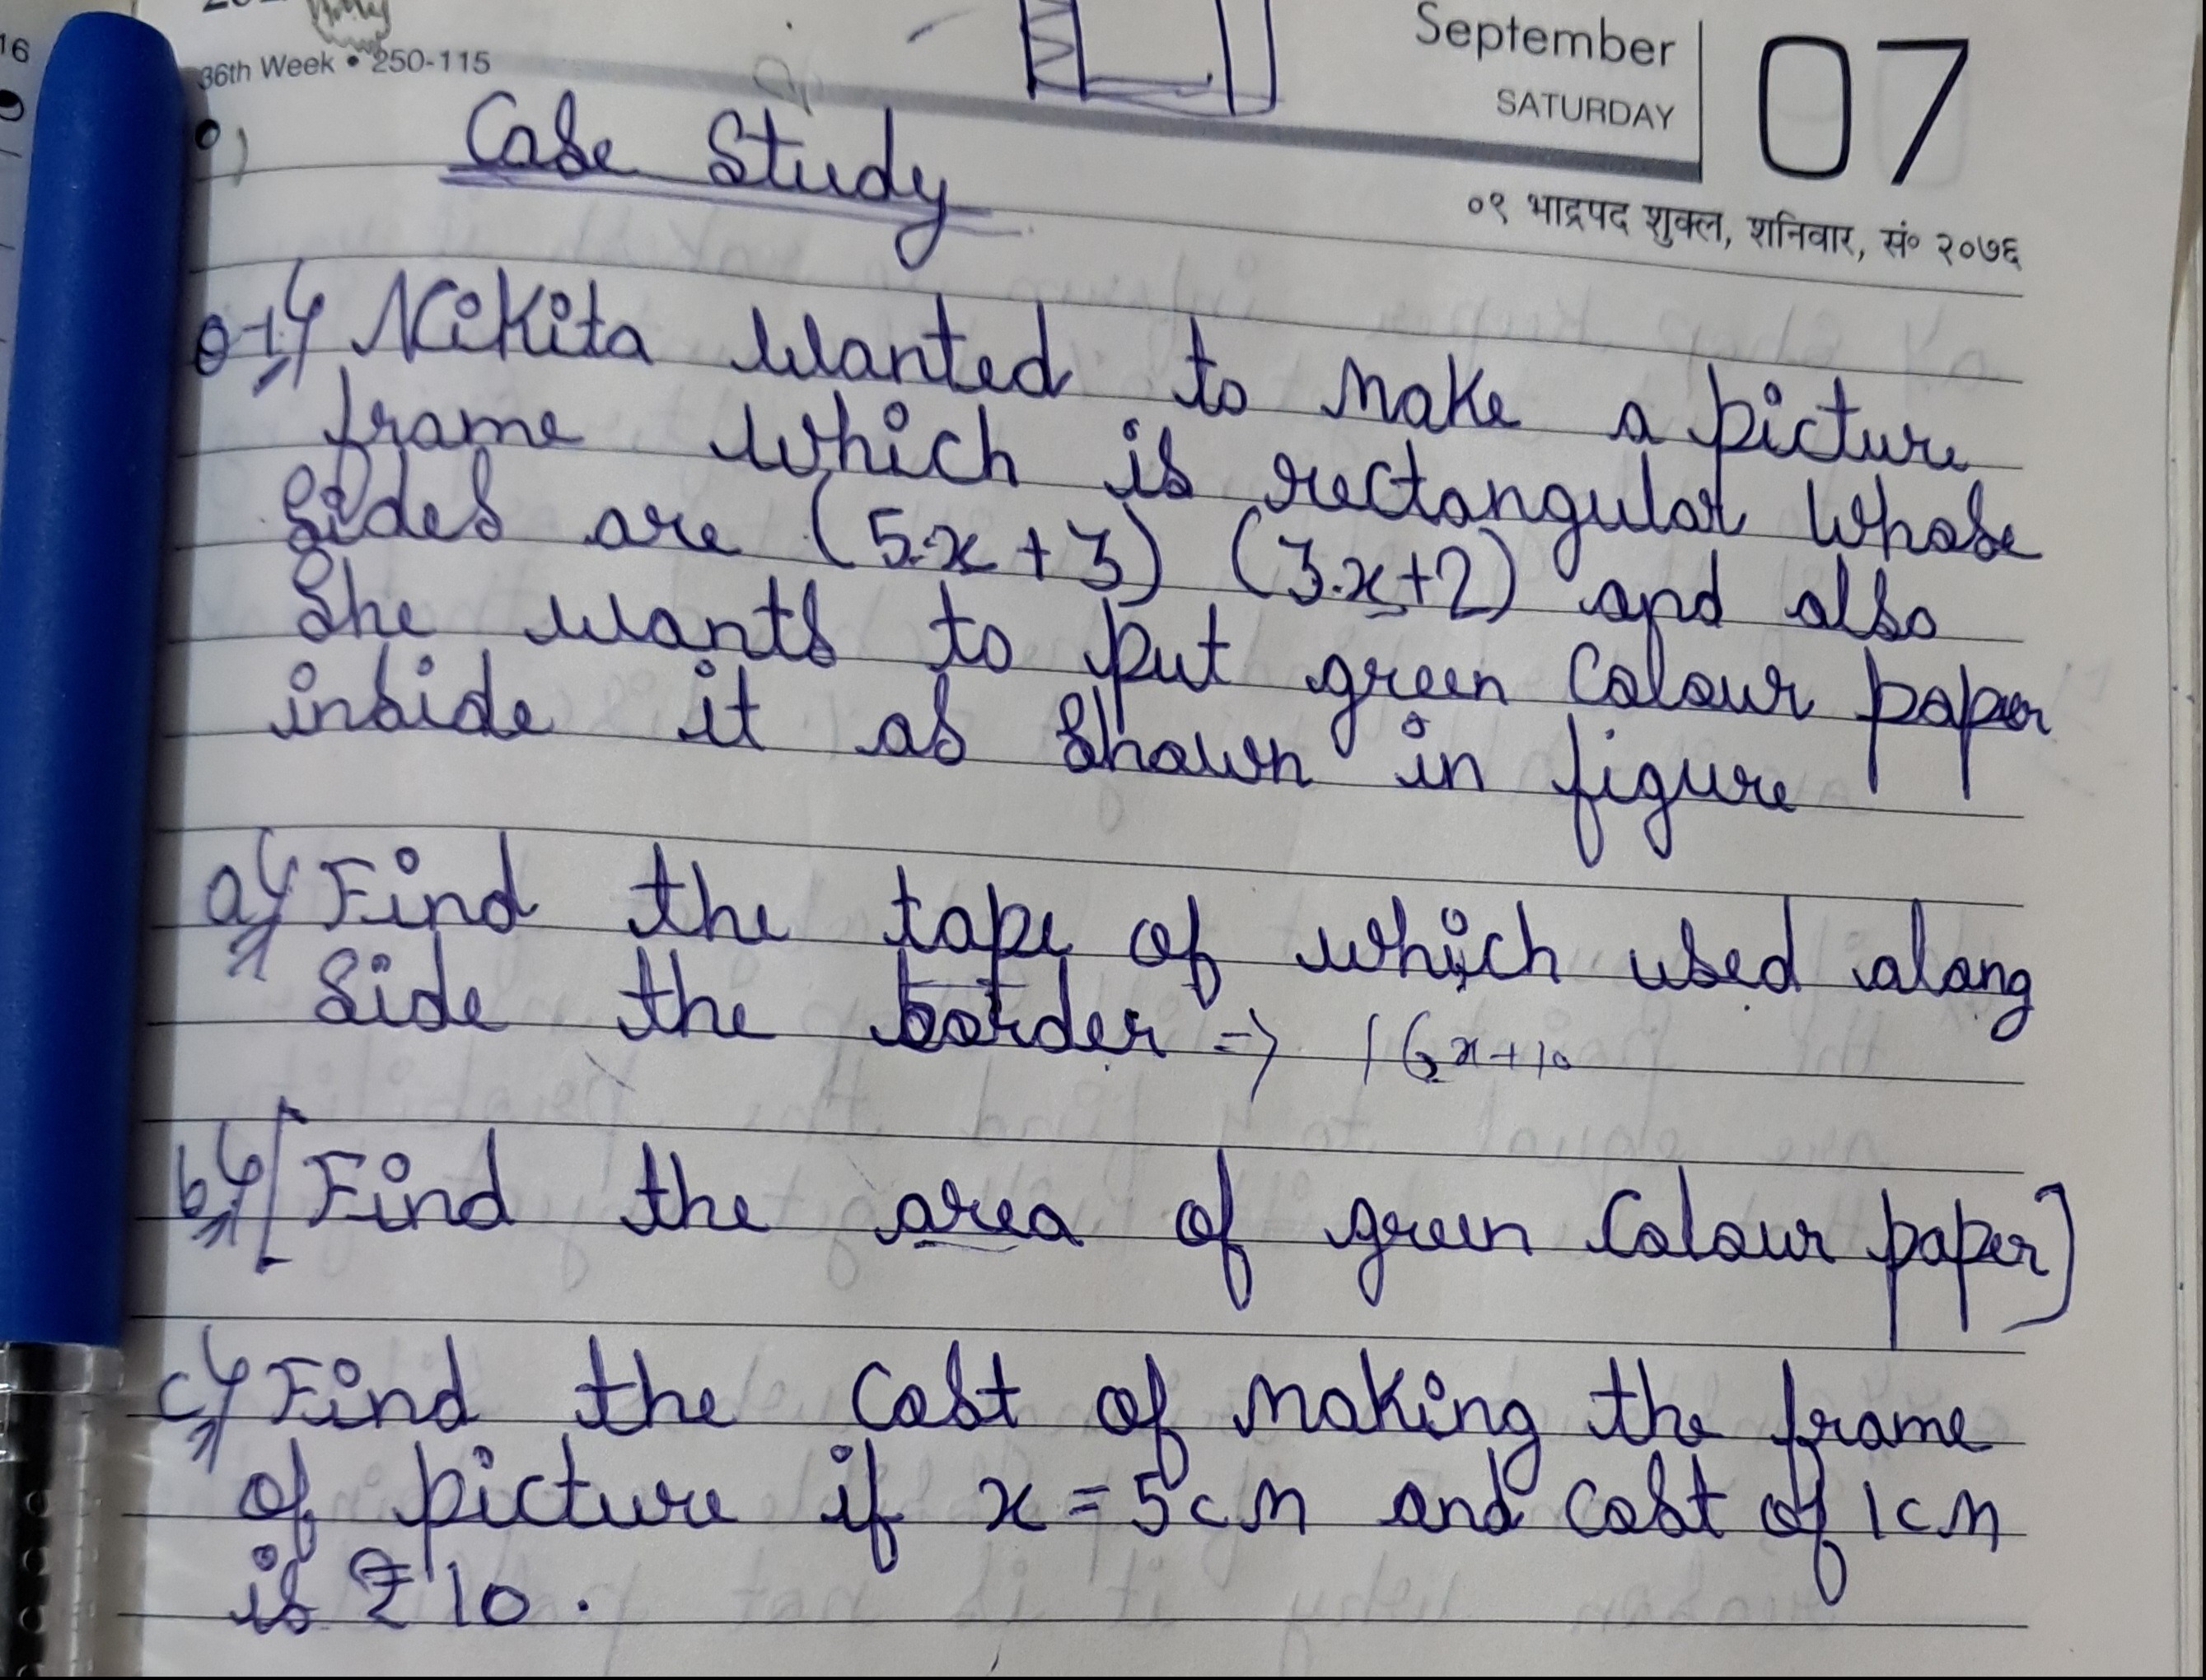 16
36th Week • 250-115
September
SATURDAY
07
०९ भाद्रपद शुक्ल, शनिवार, सं० २०७६
Case Study
Q-1 Nikita wanted to make a picture
frame which is rectangular whose
sides are (5x+3) (3x+2) and also
she wants to put green colour paper
inside it as shown in figure
a) Find the tape of which used along
side the border => 16x+10
b) [Find the area of green colour paper]
c) Find the cost of making the frame
of picture if x = 5cm and cost of 1cm
is ₹10.